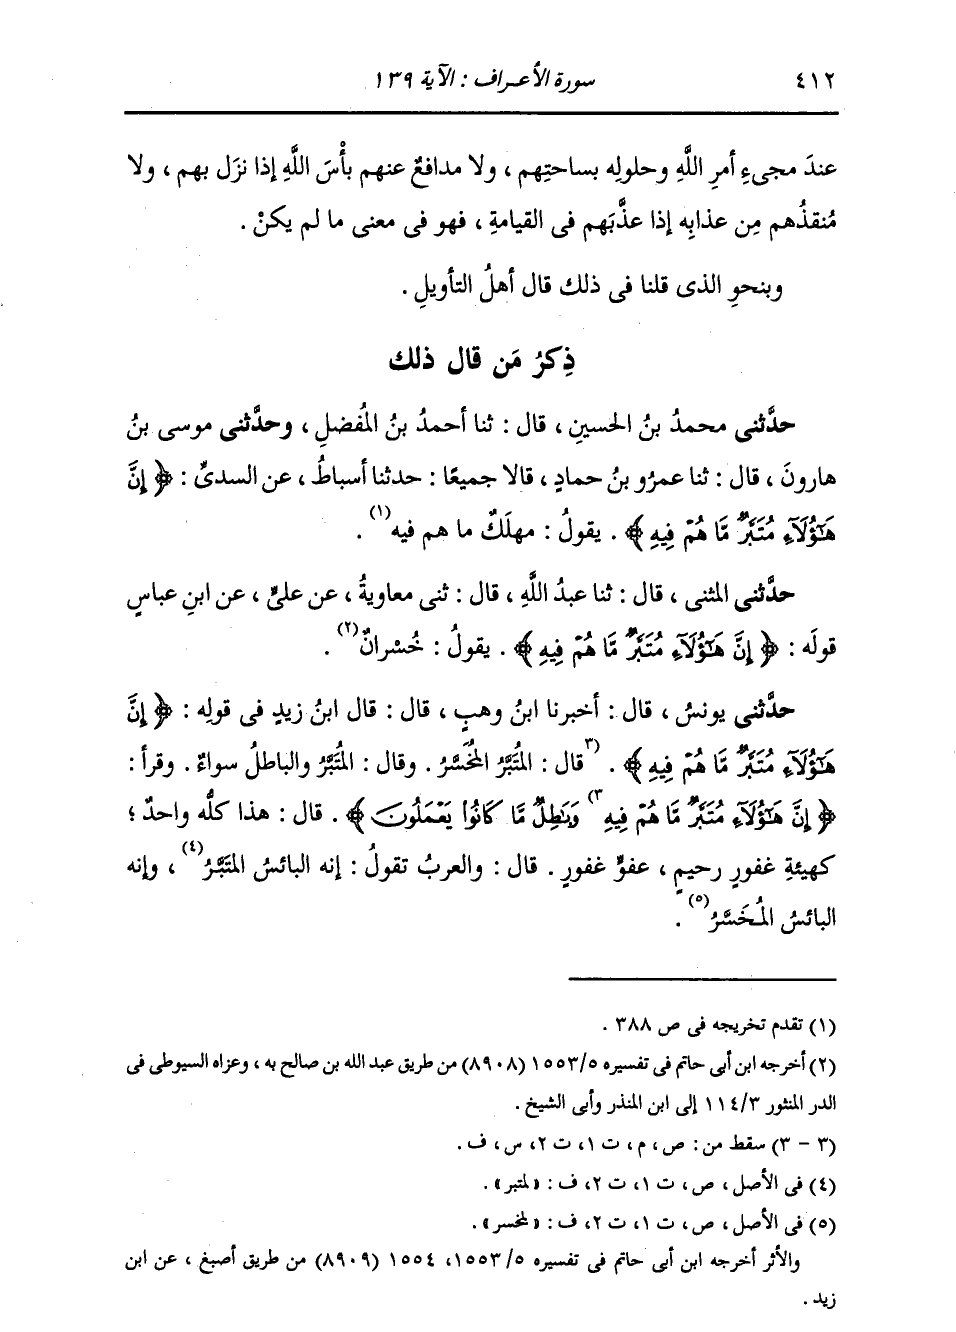 ٤١٢ سورة الأعراف : الآية ١٣٩
عندَ مجىءِ أمرِ اللَّهِ وحلولِه بساحتِهم ، ولا مدافعٌ عنهم بأْسَ اللَّهِ إذا نزَل بهم ، ولا
مُنقذُهم مِن عذابِه إذا عذَّبَهم فى القيامةِ ، فهو فى معنى ما لم يكنْ .
وبنحوِ الذى قلنا فى ذلك قال أهلُ التأويلِ .
ذِكرُ مَن قال ذلك
حدَّثنى محمدُ بنُ الحسينِ ، قال : ثنا أحمدُ بنُ المُفضلِ ، وحدَّثنى موسى بنُ
هارونَ ، قال : ثنا عمرُو بنُ حمادٍ ، قالا جميعًا : حدثنا أسباطُ ، عن السدىِّ : ﴿ إِنَّ
هَٰٓؤُلَآءِ مُتَبَّرٌ مَّا هُمْ فِيهِ ﴾ . يقولُ : مهلَكٌ ما هم فيه(١) .
حدَّثنى المثنى ، قال : ثنا عبدُ اللَّهِ ، قال : ثنى معاويةُ ، عن علىٍّ ، عن ابنِ عباسٍ
قولَه : ﴿ إِنَّ هَٰٓؤُلَآءِ مُتَبَّرٌ مَّا هُمْ فِيهِ ﴾ . يقولُ : خُسْرانٌ(٢) .
حدَّثنى يونسُ ، قال : أخبرنا ابنُ وهبٍ ، قال : قال ابنُ زيدٍ فى قولِه : ﴿ إِنَّ
هَٰٓؤُلَآءِ مُتَبَّرٌ مَّا هُمْ فِيهِ ﴾ . (٣قال : المُتَبَّرُ المُخَسَّرُ . وقال : المُتَبَّرُ والباطلُ سواءٌ . وقرأ :
﴿ إِنَّ هَٰٓؤُلَآءِ مُتَبَّرٌ مَّا هُمْ فِيهِ٣) وَبَٰطِلٌ مَّا كَانُوا۟ يَعْمَلُونَ ﴾ . قال : هذا كلُّه واحدٌ ؛
كهيئةِ غفورٍ رحيمٍ ، عفوٍّ غفورٍ . قال : والعربُ تقولُ : إنه البائسُ المتَبَّرُ(٤) ، وإنه
البائسُ المُخَسَّرُ(٥) .
(١) تقدم تخريجه فى ص ٣٨٨ .
(٢) أخرجه ابن أبى حاتم فى تفسيره ١٥٥٣/٥ (٨٩٠٨) من طريق عبد الله بن صالح به ، وعزاه السيوطى فى
الدر المنثور ١١٤/٣ إلى ابن المنذر وأبى الشيخ .
(٣ - ٣) سقط من : ص ، م ، ت ١، ت ٢، س ، ف .
(٤) فى الأصل ، ص ، ت ١، ت ٢، ف : « لمتبر » .
(٥) فى الأصل ، ص ، ت ١، ت ٢، ف : « لمخسر » .
والأثر أخرجه ابن أبى حاتم فى تفسيره ١٥٥٣/٥، ١٥٥٤ (٨٩٠٩) من طريق أصبغ ، عن ابن
زيد .